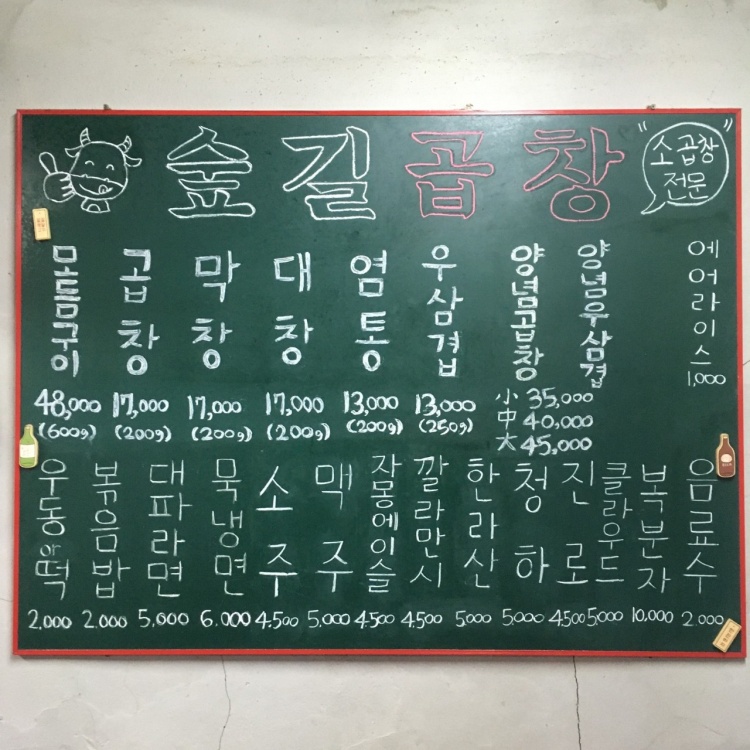 숲길곱창
"소곱창
전문"
모듬구이 곱창 막창 대창 염통 우삼겹 양념곱창 양념우삼겹 에어라이스
1,000
48,000 17,000 17,000 17,000 13,000 13,000 小 35,000
(600g) (200g) (200g) (200g) (200g) (250g) 中 40,000
大 45,000
우동or떡 볶음밥 대파라면 묵냉면 소주 맥주 자몽에이슬 깔라만시 한라산 청하 진로 클라우드 복분자 음료수
2,000 2.000 5,000 6.000 4.500 5.000 4.500 4.500 5000 5.000 4.500 5.000 10.000 2.000